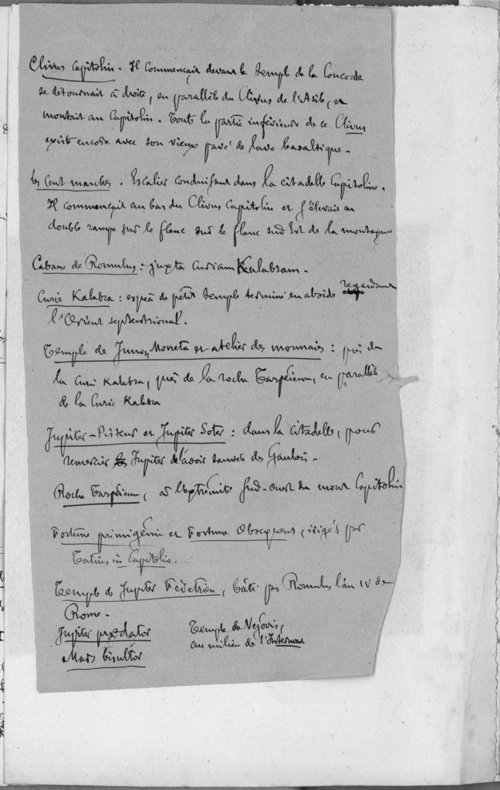 Clivus Capitolin. Il commençait devant le temple de la Concorde
se détournait à droite, en parallèle du Clivus de l'Asile, et
montait au Capitolin. Toute la partie inférieure de ce Clivus
existe encore avec son vieux pavé de lave basaltique.
les Cent marches. Escalier conduisant dans la citadelle Capitoline.
Il commençait au bas du Clivus Capitolin et s'élevait en
double rampe sur le flanc sud le flanc sud Est de la montagne
Cabane de Romulus : juxta Curiam Kalabram.
Curie Kalabra : espèce de petit temple terminé en abside regardant
l'Orient septentrional.
Temple de Junon Moneta et atelier des monnaies : près de
la Curie Kalabra, près de la roche Tarpéienne, en parallèle
de la Curie Kalabra
Jupiter-Pisteur et Jupiter Soter : dans la citadelle, pour
remercier Jupiter de l'avoir sauvée des Gaulois.
Roche Tarpéienne, à l'extrémité Sud-ouest du mont Capitolin
Fortune primigénie et Fortune Obsequens, érigés par
Tatius in Capitolio.
Temple de Jupiter Férétrien, bâti par Romulus l'an IV de
Rome.
Jupiter prædator
Mars bisultor
Temple de Vejovis,
au milieu de l'